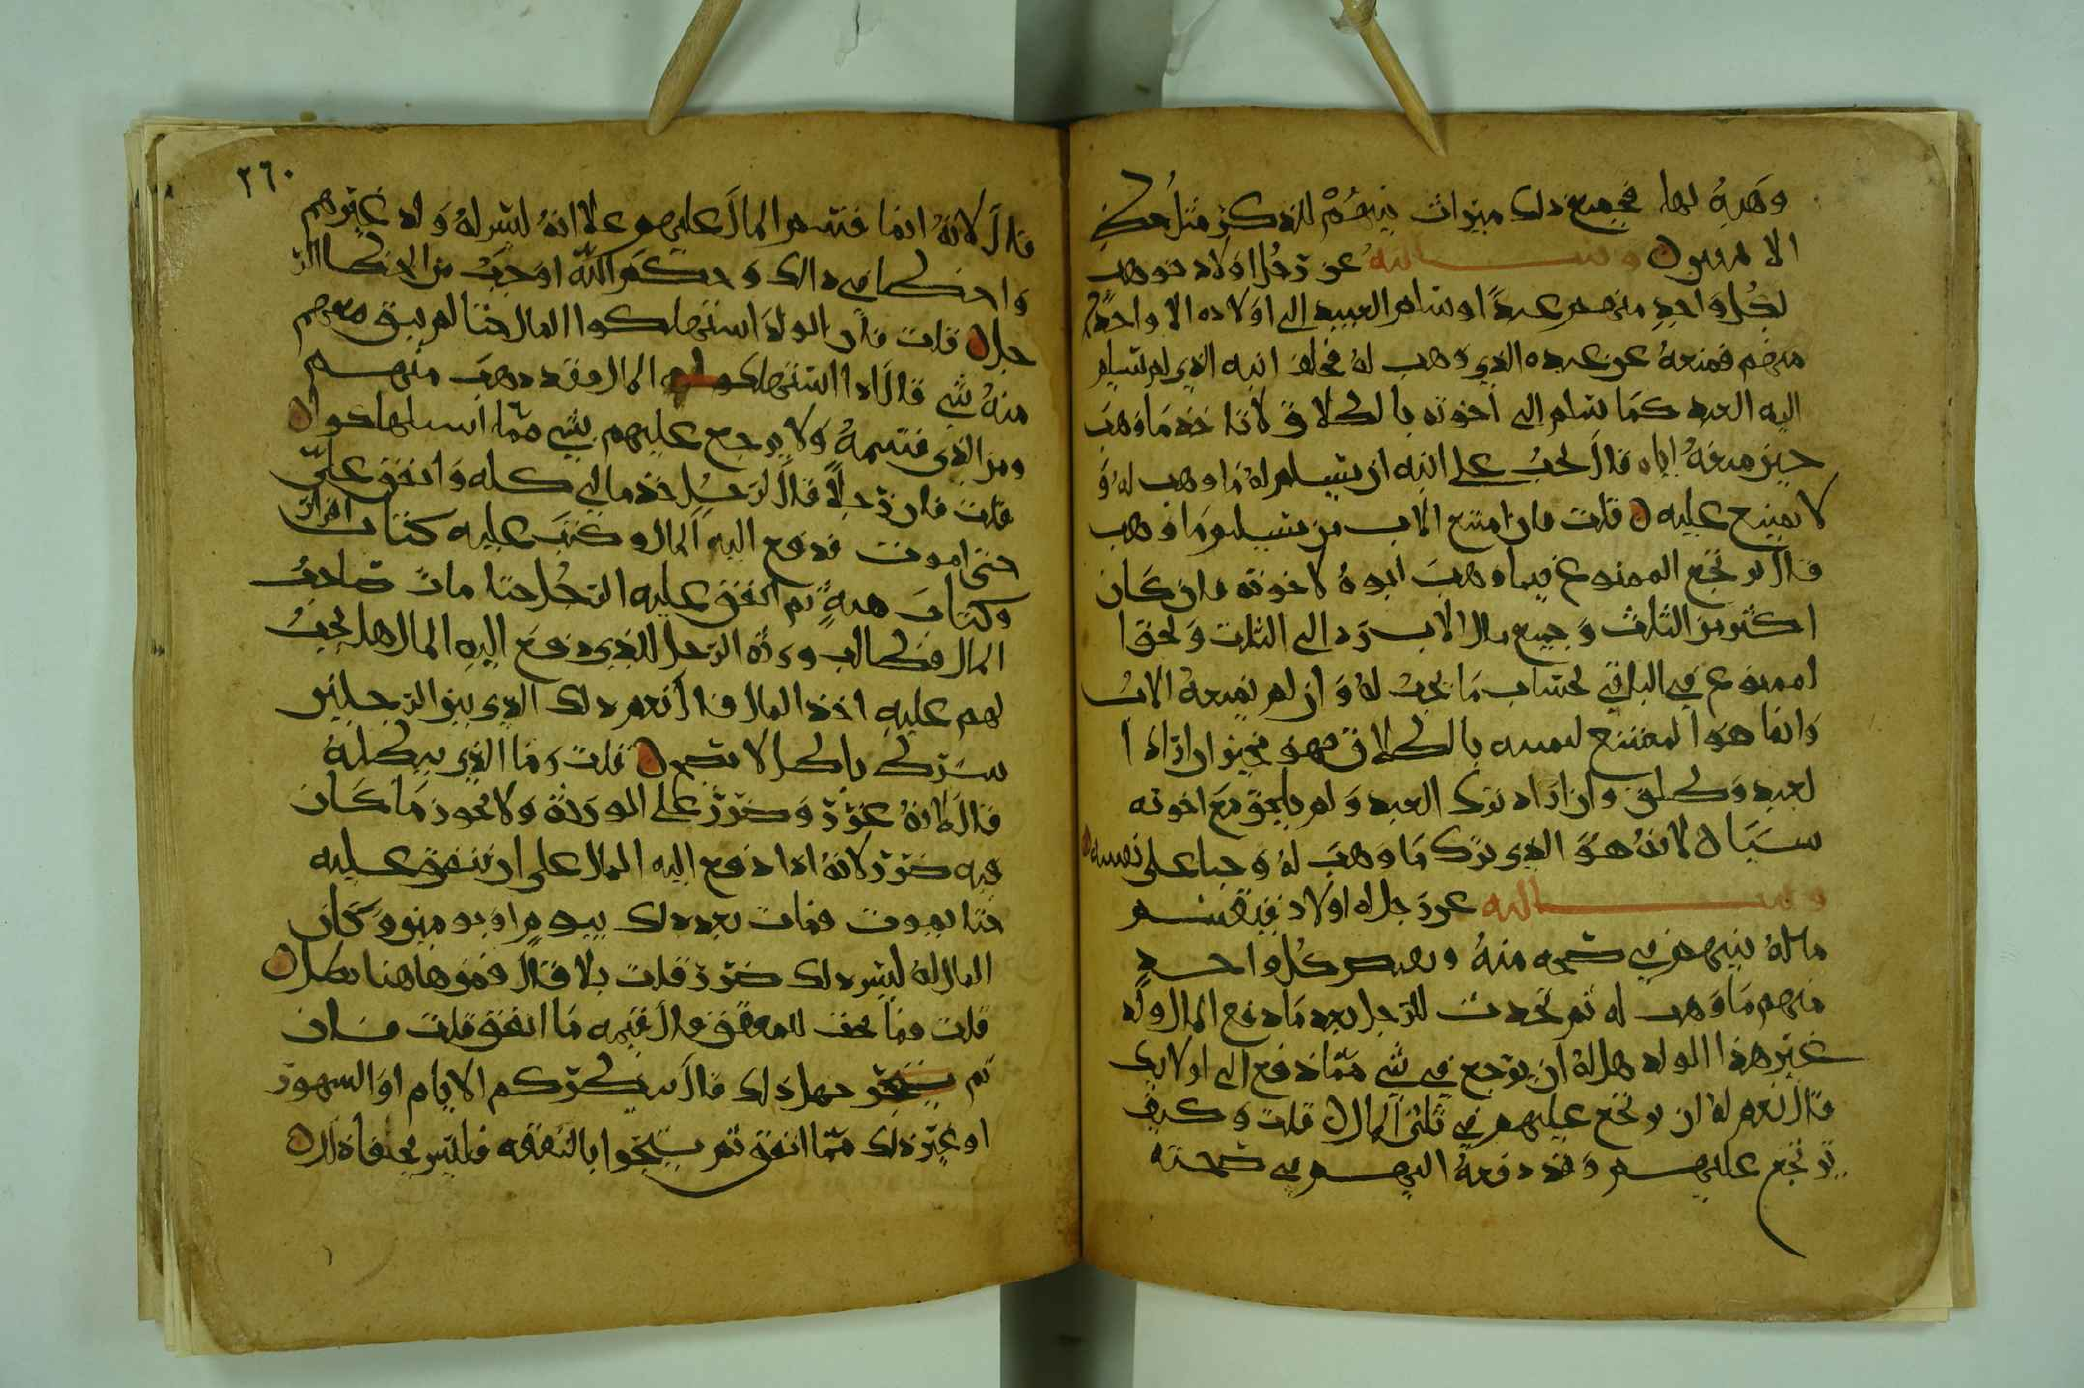 وهبه لها فجميع ذلك ميراث بينهم للذكر مثل حظ
الانثيين وسالته عن رجل له اولاد فوهب
لكل واحد منهم عبدًا وسلم العبيد الى اولاده الا واحدًا
منهم فمنعه عن عبده الذي وهب له فحلف ابنه الذي لم يسلم
اليه العبد كما سلم الى اخوته بالطلاق لا اخذ ما وهب
حين منعه اياه قال يجب على ابنه ان يسلم له ما وهب له و
لا يمنع عليه قلت فان امتنع الاب من تسليم ما وهب
قال يرجع الممنوع فيما وهب ابوه لاخوته فان كان
اكثر من الثلث وجميع مال الاب رد الى الثلث ولحق ا
لممنوع في الباقي بحساب ما يجب له وان لم يمنعه الاب
وانما هو الممتنع ليمينه بالطلاق فهو مخير ان اراد ا
لعبد وطلق وان اراد ترك العبد ولم يلحق مع اخوته
سيا لانه هو الذي ترك ما وهب له وجنا على نفسه
وسالته عن رجل له اولاد فيقسم
ماله بينهم في صحه منه ويقبض كل واحد
منهم ما وهب له ثم يحدث للرجل بعد ما دفع المال ولد
غير هذا الولد هل له ان يرجع في شي مما دفع الى اولايك
قال نعم له ان يرجع عليهم في ثلثي المال قلت وكيف
يرجع عليهم وقد دفعه اليهم في صحته
٢٦٠
قال لانه انما قسم المال عليهم على انه ليس له ولد غيرهم
واخطا في ذالك وحكم الله اوجب من الخطا الر
جل قلت فان الولد استهلكوا المال حتا لم يبق معهم
منه شي قال اذا استهلكوا المال فقد ذهب منهم
ومن الذي قسمه ولا يرجع عليهم بشي مما استهلكوا
قلت فان رجلًا قال لرجل خذ مالي كله وانفق علي
حتى اموت فدفع اليه المال وكتب عليه كتاب اقرار
وكتاب هبه ثم انفق عليه الرجل حتا مات صاحب
المال فطالب ورثه الرجل للذي دفع اليه المال هل يجب
لهم عليه اخذ المال قال نعم ذلك الذي بين الرجلين
شرط باطل لا يصح قلت وما الذي يبطله
قال لانه غرر وضرر على الورثة ولا يجوز ما كان
فيه ضرر لانه اذا دفع اليه المال على ان ينفق عليه
حتا يموت فمات بعد ذلك بيوم او بيومين وكان
المال له ليس ذلك ضرر قلت بلا قال فمن هاهنا بطل
قلت فما يجب للمنفق قال قيمه ما انفق قلت فان
لم جهل ذلك قال ينظر كم الايام او الشهور
او غير ذلك مما انفق ثم بالنفقه فليس يخفاه ذلك